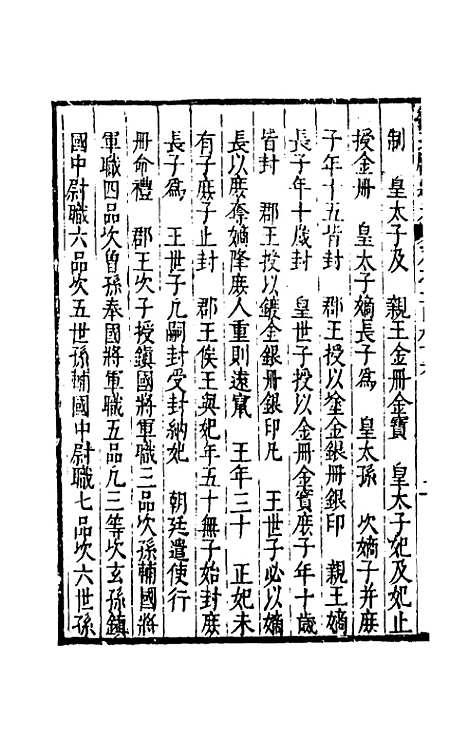 制　皇太子及　親王金冊金寶　皇太子妃及妃止
授金冊　皇太子嫡長子爲　皇太孫　次嫡子并庶
子年十五皆封　郡王授以塗金銀冊銀印　親王嫡
長子年十歲封　皇世子授以金冊金寶庶子年十歲
皆封　郡王授以鍍金銀冊銀印凡　王世子必以嫡
長以庶奪嫡降庶人重則遠竄　王年三十　正妃未
有子庶子止封　郡王俟王與妃年五十無子始封庶
長子爲　王世子凡嗣封受封納妃　朝廷遣使行
冊命禮　郡王次子授鎮國將軍職三品次孫輔國將
軍職四品次曾孫奉國將軍職五品凡三等次玄孫鎮
國中尉職六品次五世孫輔國中尉職七品次六世孫